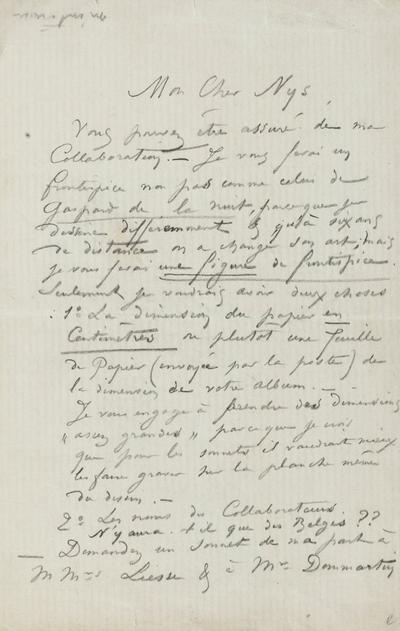 Mon Cher Nys,
Vous pouvez être assuré de ma
Collaboration. — Je vous ferai un
frontispice non pas comme celui de
Gaspard de la nuit, parceque je
dessine différemment & qu'à six ans
de distance on a changé son art; mais
je vous ferai une figure de frontispice.
Seulement je voudrais avoir deux choses
: 1º La dimension du papier en
Centimètres ou plutôt une feuille
de Papier (envoyée par la poste) de
la dimension de votre album. —
Je vous engage à prendre des dimensions
"assez grandes" parceque je crois
que pour les sonnets il vaudrait mieux
les faire graver sur la planche même
du dessin. —
2º Les noms des Collaborateurs.
N'y aura-t-il que des Belges ??
— Demandez un sonnet de ma part à
M Mrs Liesse & à Mr Dommartin